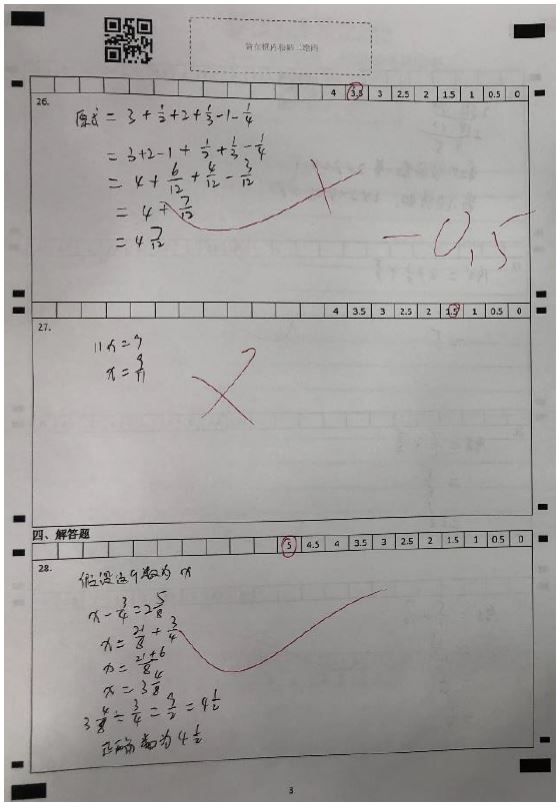 请在框内粘贴二维码
4 3.5 3 2.5 2 1.5 1 0.5 0
26.
原式 = 3 + 1/2 + 2 + 1/3 - 1 - 1/4
= 3 + 2 - 1 + 1/2 + 1/3 - 1/4
= 4 + 6/12 + 4/12 - 3/12
= 4 + 7/12
= 4 7/12
-0.5
4 3.5 3 2.5 2 1.5 1 0.5 0
27.
11x = 9
x = 9/11
四、解答题
5 4.5 4 3.5 3 2.5 2 1.5 1 0.5 0
28.
假设这个数为 x
x - 3/4 = 2 5/8
x = 21/8 + 3/4
x = 21+6/8
x = 3 4/8
3 4/8 ÷ 3/4 = 9/2 = 4 1/2
正确数为 4 1/2
3